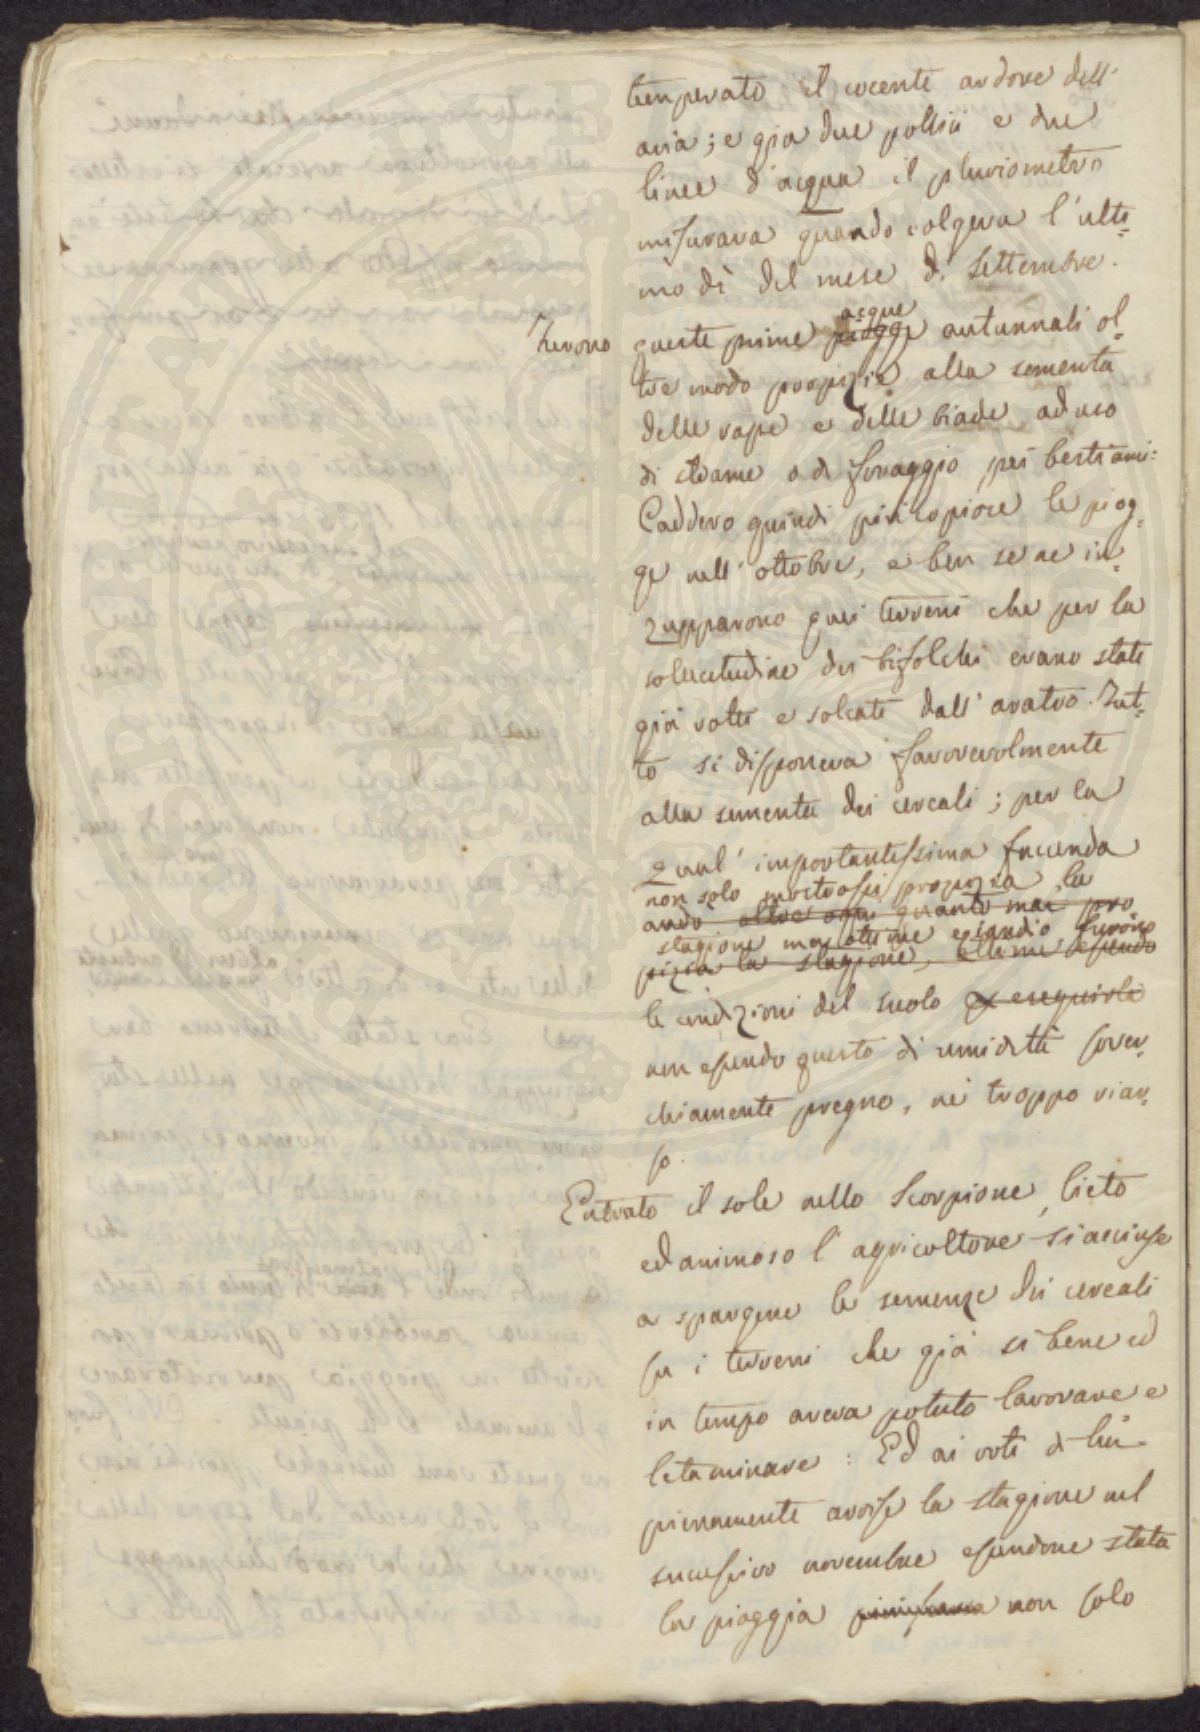 temperato il cocente ardore dell'
aria; e già due pollici e due
linee d'acqua il pluviometro
misurava quando volgeva l'ulti=
mo dì del mese di Settembre.
acque
Furono queste prime piogge autunnali ol=
tre modo propizie alla sementa
delle rape e delle biade ad uso
di strame o di foraggio pei bestiami:
Caddero quindi più copiose le piog=
ge nell'ottobre, e ben se ne in=
zupparono quei terreni che per la
sollecitudine dei bifolchi erano stati
già rotti e solcati dall'aratro. Tut=
to si disponeva favorevolmente
alla sementa dei cereali; per la
qual' importantissima faccenda
non solo mostrossi propizia la
ando oltre ogni quanto mai pro
stagione ma ottime eziandio furono
pizia la stagione, ottime essendo
le condizioni del suolo per eseguirla
non essendo questo di umidità sover=
chiamente pregno, nè troppo riar=
so.
Entrato il sole nello Scorpione, lieto
ed animoso l'agricoltore si accinse
a spargere le semenze dei cereali
su i terreni che già sì bene ed
in tempo aveva potuto lavorare e
letaminare: Ed ai voti di lui
pienamente arrise la stagione nel
successivo novembre essendone stata
la pioggia non solo